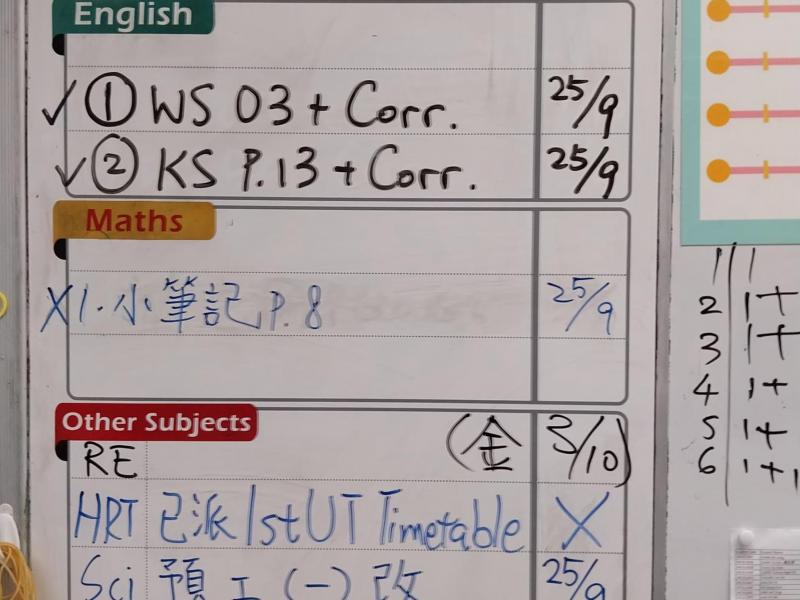 English
✓ ① WS 03 + Corr. 25/9
✓ ② KS P.13 + Corr. 25/9
Maths
X 1. 小筆記 P.8 25/9
Other Subjects
RE (金 3/10)
HRT 已派 1st UT Timetable X
Sci 預工(一)改 25/9
1 1
2 1+
3 1+
4 1+
5 1+
6 1+1